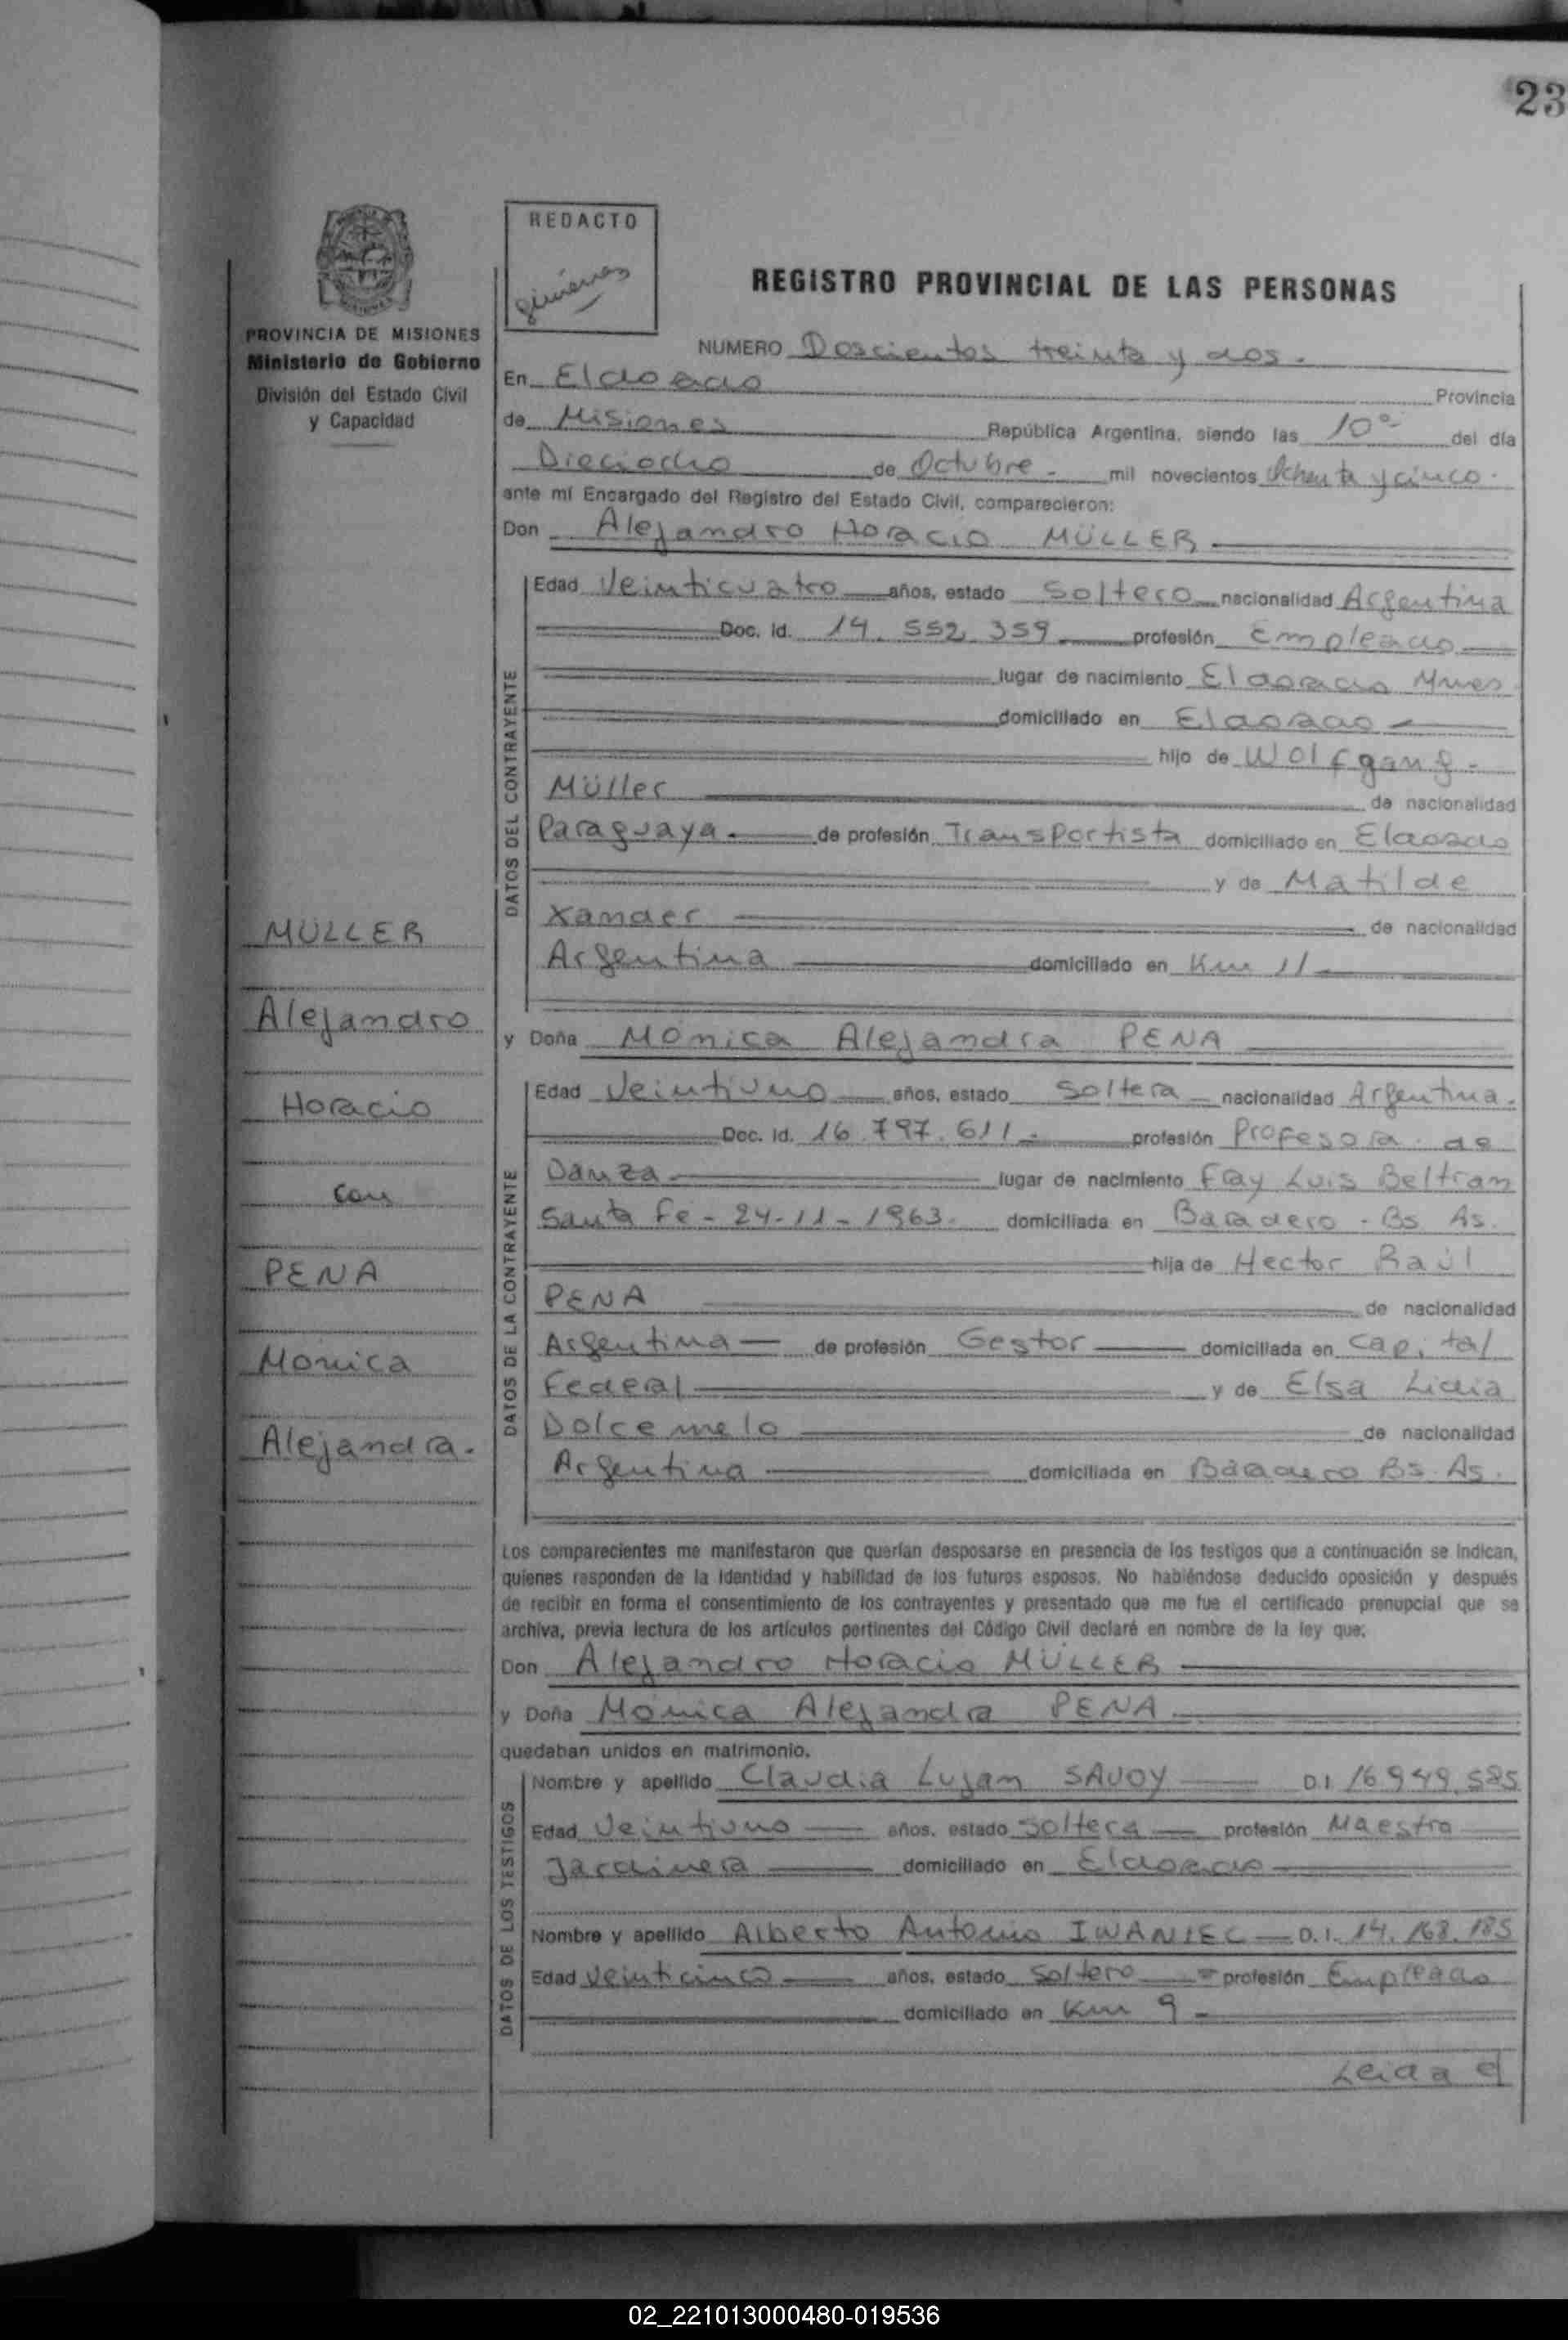 23
REDACTO
Giménez
REGISTRO PROVINCIAL DE LAS PERSONAS
PROVINCIA DE MISIONES
Ministerio de Gobierno
División del Estado Civil
y Capacidad
NUMERO Doscientos treinta y dos.
En Eldorado Provincia
de Misiones República Argentina, siendo las 10º del día
Dieciocho de Octubre - mil novecientos Ochenta y cinco.
ante mí Encargado del Registro del Estado Civil, comparecieron:
Don Alejandro Horacio MÜLLER
DATOS DEL CONTRAYENTE
Edad Veinticuatro años, estado Soltero nacionalidad Argentina
Doc. Id. 14.552.359 profesión Empleado
lugar de nacimiento Eldorado Mnes
domiciliado en Eldorado
hijo de Wolfgang -
Müller de nacionalidad
Paraguaya. de profesión Transportista domiciliado en Eldorado
y de Matilde
Xander de nacionalidad
Argentina domiciliado en Km 11
MÜLLER
Alejandro
Horacio
con
PENA
Monica
Alejandra.
y Doña Mónica Alejandra PENA
DATOS DE LA CONTRAYENTE
Edad Veintiuno años, estado Soltera nacionalidad Argentina.
Doc. Id. 16.797.611. profesión Profesora de
Danza lugar de nacimiento Fray Luis Beltran
Santa Fe - 24-11-1963. domiciliada en Baradero - Bs. As.
hija de Hector Raúl
PENA de nacionalidad
Argentina de profesión Gestor domiciliada en Capital
Federal y de Elsa Lidia
Dolcemelo de nacionalidad
Argentina domiciliada en Baradero Bs. As.
Los comparecientes me manifestaron que querían desposarse en presencia de los testigos que a continuación se indican,
quienes responden de la identidad y habilidad de los futuros esposos. No habiéndose deducido oposición y después
de recibir en forma el consentimiento de los contrayentes y presentado que me fue el certificado prenupcial que se
archiva, previa lectura de los artículos pertinentes del Código Civil declaré en nombre de la ley que:
Don Alejandro Horacio MÜLLER
y Doña Mónica Alejandra PENA
quedaban unidos en matrimonio.
DATOS DE LOS TESTIGOS
Nombre y apellido Claudia Lujan SAVOY D.I. 16.949.585
Edad Veintiuno años, estado Soltera profesión Maestra
Jardinera domiciliado en Eldorado
Nombre y apellido Alberto Antonio IWANIEC D.I. 14.168.185
Edad Veinticinco años, estado Soltero profesión Empleado
domiciliado en Km 9
Leida el
02_221013000480-019536